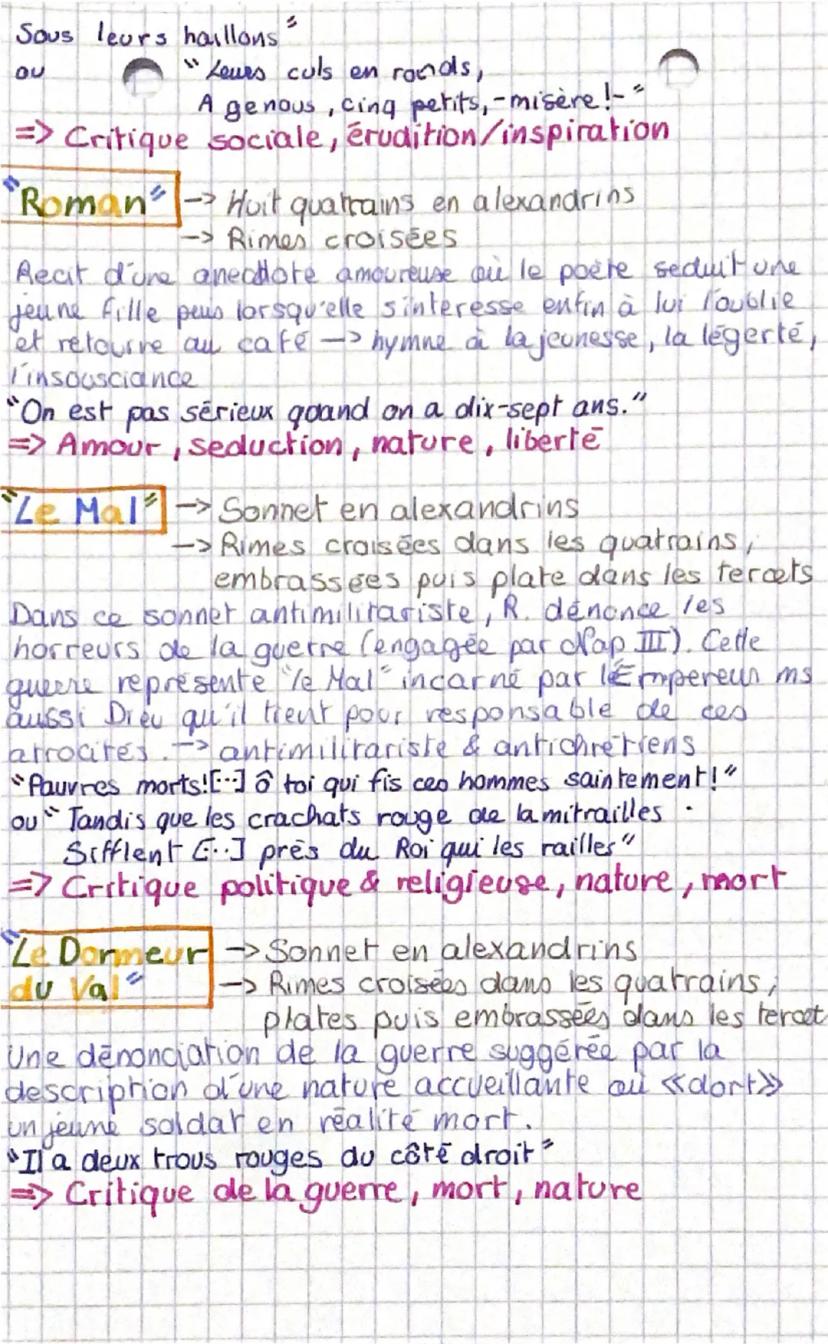 Sous leurs haillons"
ou "Leurs culs en ronds,
A genous, cinq petits, -misère!-"
=> Critique sociale, érudition/inspiration
"Roman" -> Huit quatrains en alexandrins
-> Rimes croisées
Recit d'une anecdote amoureuse où le poète seduit une
jeune fille puis lorsqu'elle s'interesse enfin à lui l'oublie
et retourne au café -> hymne à la jeunesse, la légerté,
l'insousciance
"On est pas sérieux quand on a dix-sept ans."
=> Amour, seduction, nature, liberté
"Le Mal" -> Sonnet en alexandrins
-> Rimes croisées dans les quatrains,
embrassées puis plate dans les tercets
Dans ce sonnet antimilitariste, R. dénonce les
horreurs de la guerre (engagée par Nap III). Cette
guerre représente "le Mal" incarné par l'Empereur ms
aussi Dieu qu'il tient pour responsable de ces
atrocités. -> antimilitariste & antichrétiens
"Pauvres morts![..] ô toi qui fis ces hommes saintement!"
ou "Tandis que les crachats rouge de la mitrailles
Sifflent [..] près du Roi qui les railles"
=> Critique politique & religieuse, nature, mort
"Le Dormeur -> Sonnet en alexandrins
du Val" -> Rimes croisées dans les quatrains,
plates puis embrassées dans les tercet
Une dénonciation de la guerre suggérée par la
description d'une nature accueillante où «dort»
un jeune soldat en réalité mort.
"Il a deux trous rouges du côté droit"
=> Critique de la guerre, mort, nature